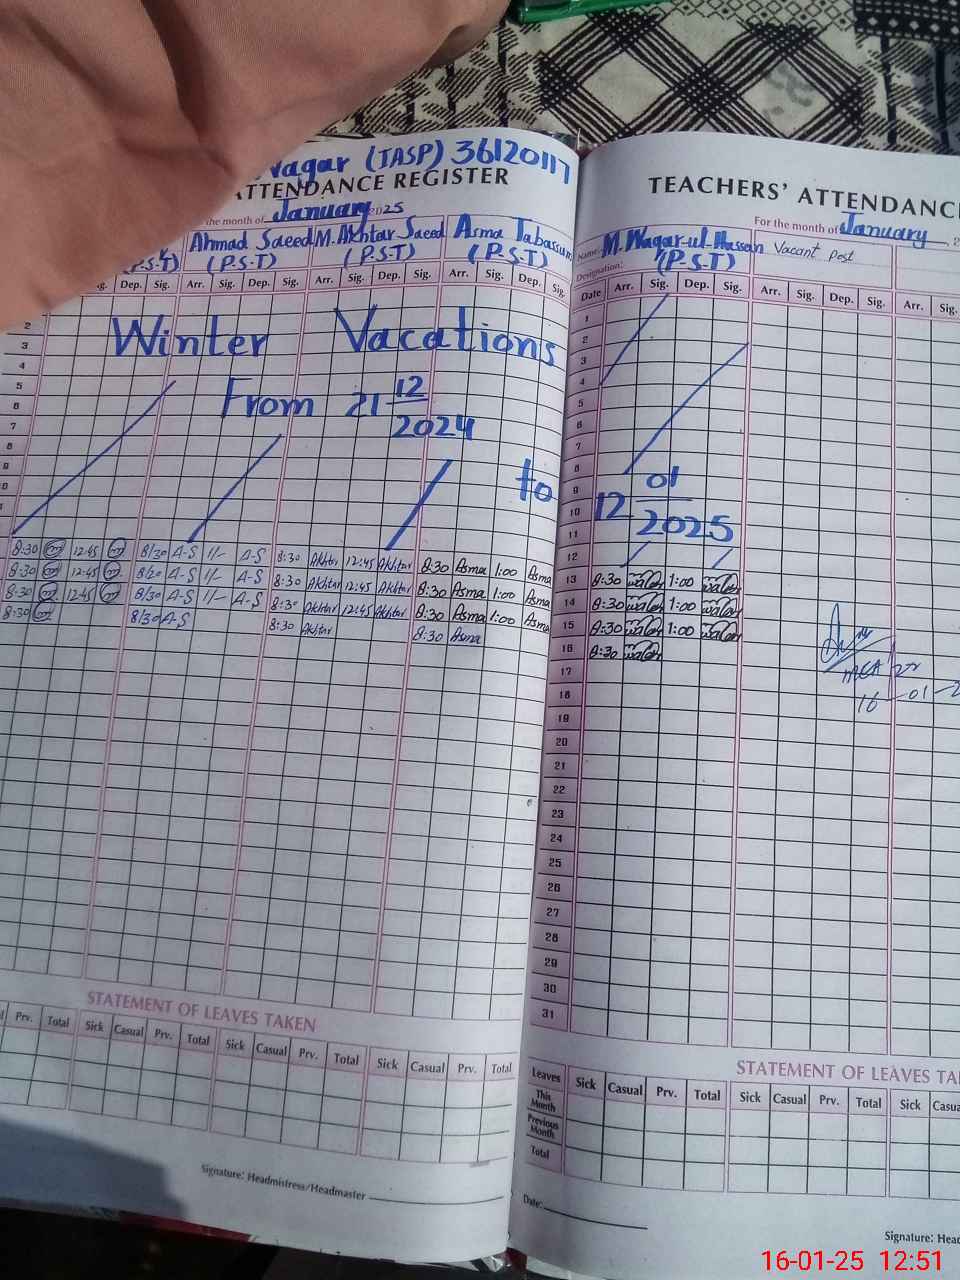 Nagar (TASP) 36120117
ATTENDANCE REGISTER
the month of January 2025
(P.S.T) Ahmad Saeed (P.S.T) M. Akhtar Saeed (P.S.T) Asma Tabasum (P.S.T)
Dep. Sig. Arr. Sig. Dep. Sig. Arr. Sig. Dep. Sig. Arr. Sig. Dep. Sig.
2
3
4
5
6
7
8
9
Winter Vacations
From 21 12/2024 to
8:30 12:45 8/30 A-S 1/- A-S 8:30 Akhtar 12:45 Akhtar 8:30 Asma 1:00 Asma
8:30 12:45 8/30 A-S 1/- A-S 8:30 Akhtar 12:45 Akhtar 8:30 Asma 1:00 Asma
8:30 12:45 8/30 A-S 1/- A-S 8:30 Akhtar 12:45 Akhtar 8:30 Asma 1:00 Asma
8:30 8/30 A-S 8:30 Akhtar 8:30 Asma
STATEMENT OF LEAVES TAKEN
Prv. Total Sick Casual Prv. Total Sick Casual Prv. Total Sick Casual Prv. Total
Signature: Headmistress/Headmaster
TEACHERS' ATTENDANC
For the month of January
Name: M. Waqar-ul-Hassan Vacant post
Designation: (P.S.T)
Date Arr. Sig. Dep. Sig. Arr. Sig. Dep. Sig. Arr. Sig.
1
2
3
4
5
6
7
8
9
10
11
12 01/2025
12
13 8:30 1:00
14 8:30 1:00
15 8:30 1:00
16 8:30
17
18
16-01-2
19
20
21
22
23
24
25
26
27
28
29
30
31
STATEMENT OF LEAVES TA
Leaves Sick Casual Prv. Total Sick Casual Prv. Total Sick Casua
This Month
Previous Month
Total
Date:
Signature: Head
16-01-25 12:51